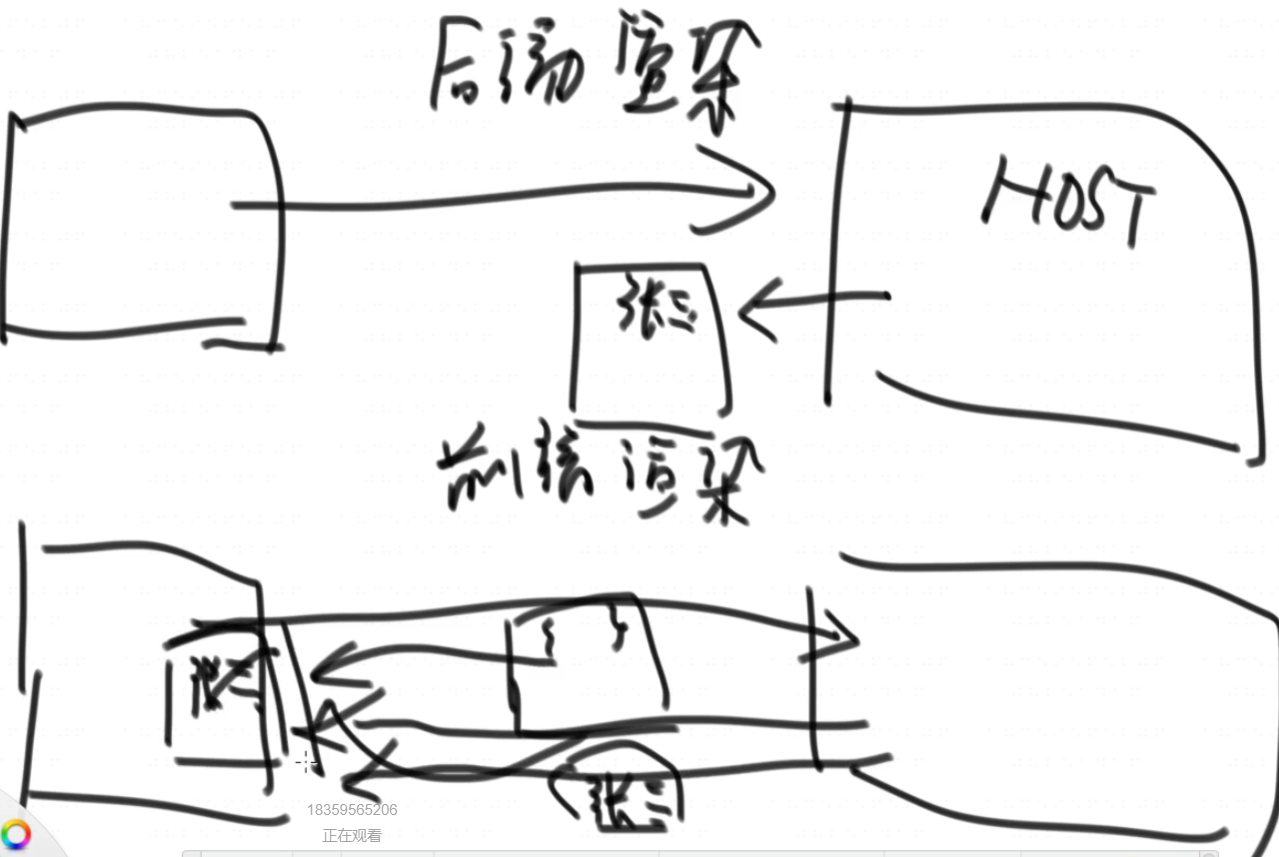 后端渲染
HOST
张三
前端渲染
{ }
张三
张三
18359565206
正在观看